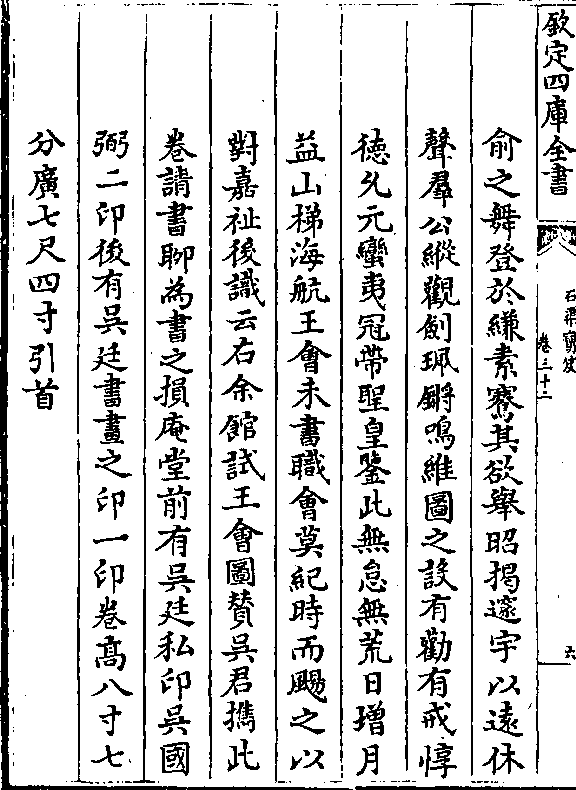 欽定四庫全書
石渠寶笈
卷三十二
六
俞之舞登於縑素騫其欲舉昭揭邃宇以遠休
聲羣公縱觀劍珮鏘鳴維圖之設有勸有戒惇
徳允元蠻夷冠帶聖皇鑒此無怠無荒日増月
益山梯海航王會未書職會莫紀時而颺之以
對嘉祉後識云右余館試王會圖賛吳君攜此
卷請書聊為書之損庵堂前有吳廷私印吳國
弼二印後有吳廷書畫之印一印卷髙八寸七
分廣七尺四寸引首